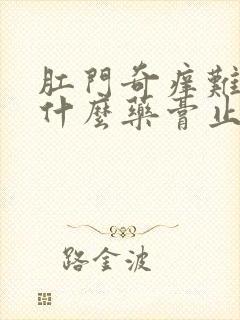 肛門奇痒難
什麼藥膏止
路金波